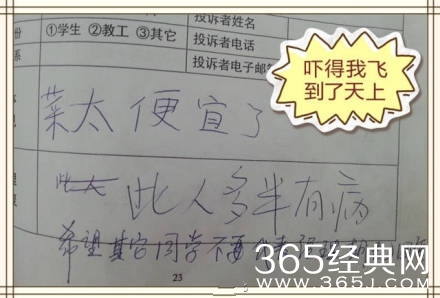 投诉者姓名
份 ①学生 ②教工 ③其它
投诉者电话
系
投诉者电子邮箱
吓得我飞
到了天上
菜太便宜了
此人多半有病
希望其它同学不要
23
365经典网
www.365j.com